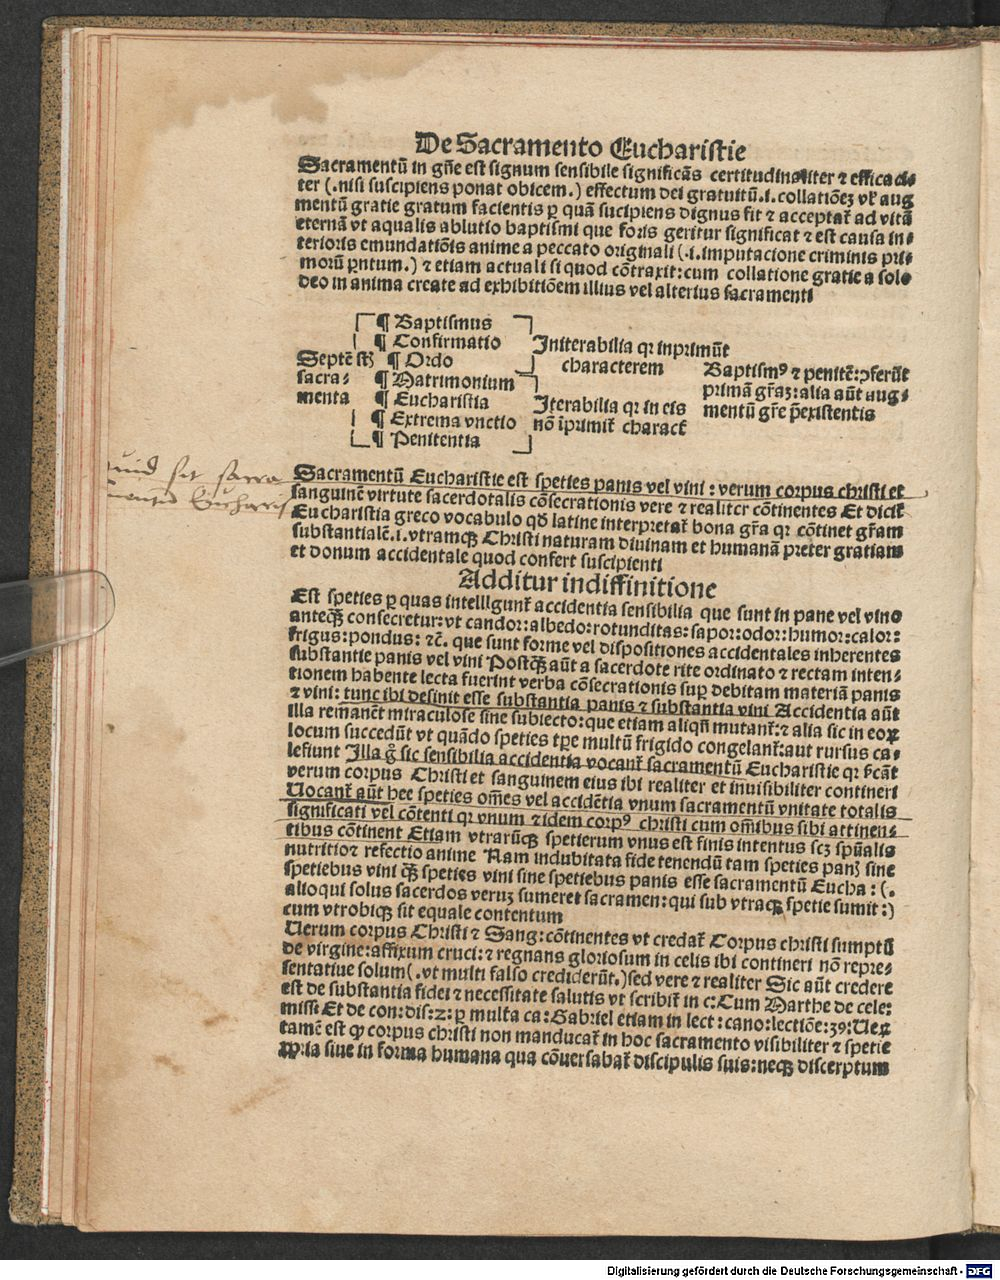 De Sacramento Eucharistie
Sacramentū in gn̄e est signum sensibile significās certitudinaliter ⁊ efficaci⸗
ter (.nisi suscipiens ponat obicem.) effectum dei gratuitū.i.collatiōeꝫ vl̕ aug
mentū gratie gratum facientis ꝑ quā sucipiens dignus fit ⁊ acceptat̄ ad vitā
eternā vt aqualis ablutio baptismi que foris geritur significat ⁊ est causa in⸗
terioris emundatiōis anime a peccato originali (.i.imputacione criminis pri⸗
morū pr̄ntum.) ⁊ etiam actuali si quod cōtraxit:cum collatione gratie a solo
deo in anima create ad exhibitiōem illius vel alterius sacramenti
¶ Baptismus
¶ Confirmatio
Initerabilia qꝛ inprimūt
Septē st̄ꝫ ¶ Ordo
characterem
Baptismꝰ ⁊ penitē:ↄferūt
sacra⸗ ¶ Matrimonium
primā gr̄aꝫ:alia aūt aug⸗
menta ¶ Eucharistia
Iterabilia qꝛ in eis
mentū gr̄e p̄existentis
¶ Extrema vnctio
nō īprimit̄ charact̄
¶ Penitentia
Sacramentū Eucharistie est speties panis vel vini : verum corpus christi et
sanguinē virtute sacerdotalis cōsecrationis vere ⁊ realiter cōtinentes Et dicit̄
Eucharistia greco vocabulo qd̄ latine interpretat̄ bona gr̄a qꝛ cōtinet gr̄am
substantialē.i.vtramqꝫ Christi naturam diuinam et humanā preter gratiam
et donum accidentale quod confert suscipienti
Additur indiffinitione
Est speties ꝑ quas intelligunt̄ accidentia sensibilia que sunt in pane vel vino
anteqꝫ consecretur:vt candor:albedo:rotunditas:sapor:odor:humor:calor:
frigus:pondus: ⁊c̄. que sunt forme vel dispositiones accidentales inherentes
substantie panis vel vini Postqꝫ aūt a sacerdote rite ordinato ⁊ rectam inten⸗
tionem habente lecta fuerint verba cōsecrationis suꝑ debitam materiā panis
⁊ vini: tunc ibi desinit esse substantia panis ⁊ substantia vini Accidentia aūt
illa remanēt miraculose sine subiecto:que etiam aliqn̄ mutant̄:⁊ alia sic in eoꝝ
locum succedūt vt quādo speties tꝑe multū frigido congelant̄:aut rursus ca⸗
lefiunt Illa g̊ sic sensibilia accidentia vocant̄ sacramentū Eucharistie qꝛ sc̄ant
verum corpus Christi et sanguinem eius ibi realiter et inuisibiliter contineri
Uocant̄ aūt hee speties om̄es vel accidētia vnum sacramentū vnitate totalis
significati vel cōtenti qꝛ vnum ⁊ idem corpꝰ christi cum om̄ibus sibi attinen⸗
tibus cōtinent Etiam vtrarūqꝫ spetierum vnus est finis intentus scꝫ spūalis
nutritio ⁊ refectio anime Nam indubitata fide tenendū tam speties panꝭ sine
spetiebus vini qꝫ speties vini sine spetiebus panis esse sacramentū Eucha : (.
alioqui solus sacerdos veruꝫ sumeret sacramen:qui sub vtraqꝫ spetie sumit:)
cum vtrobiqꝫ sit equale contentum
Uerum corpus Christi ⁊ Sang:cōtinentes vt credat̄ Corpus christi sumptū
de virgine:affixum cruci:⁊ regnans gloriosum in celis ibi contineri nō repre⸗
sentatiue solum(.vt multi falso crediderūt.)sed vere ⁊ realiter Sic aūt credere
est de substantia fidei ⁊ necessitate salutis vt scribit̄ in c:Cum Marthe de cele:
miss: Et de con:dis:2: ꝑ multa ca:Gabriel etiam in lect:cano:lectiōe:39:
tamē est ꝙ corpus christi non manducat̄ in hoc sacramento visibiliter ⁊ spetie
ꝓpria siue in forma humana qua cōuersabat̄ discipulis suis:neqꝫ discerptum
sit sacra
Digitalisierung gefördert durch die Deutsche Forschungsgemeinschaft - DFG